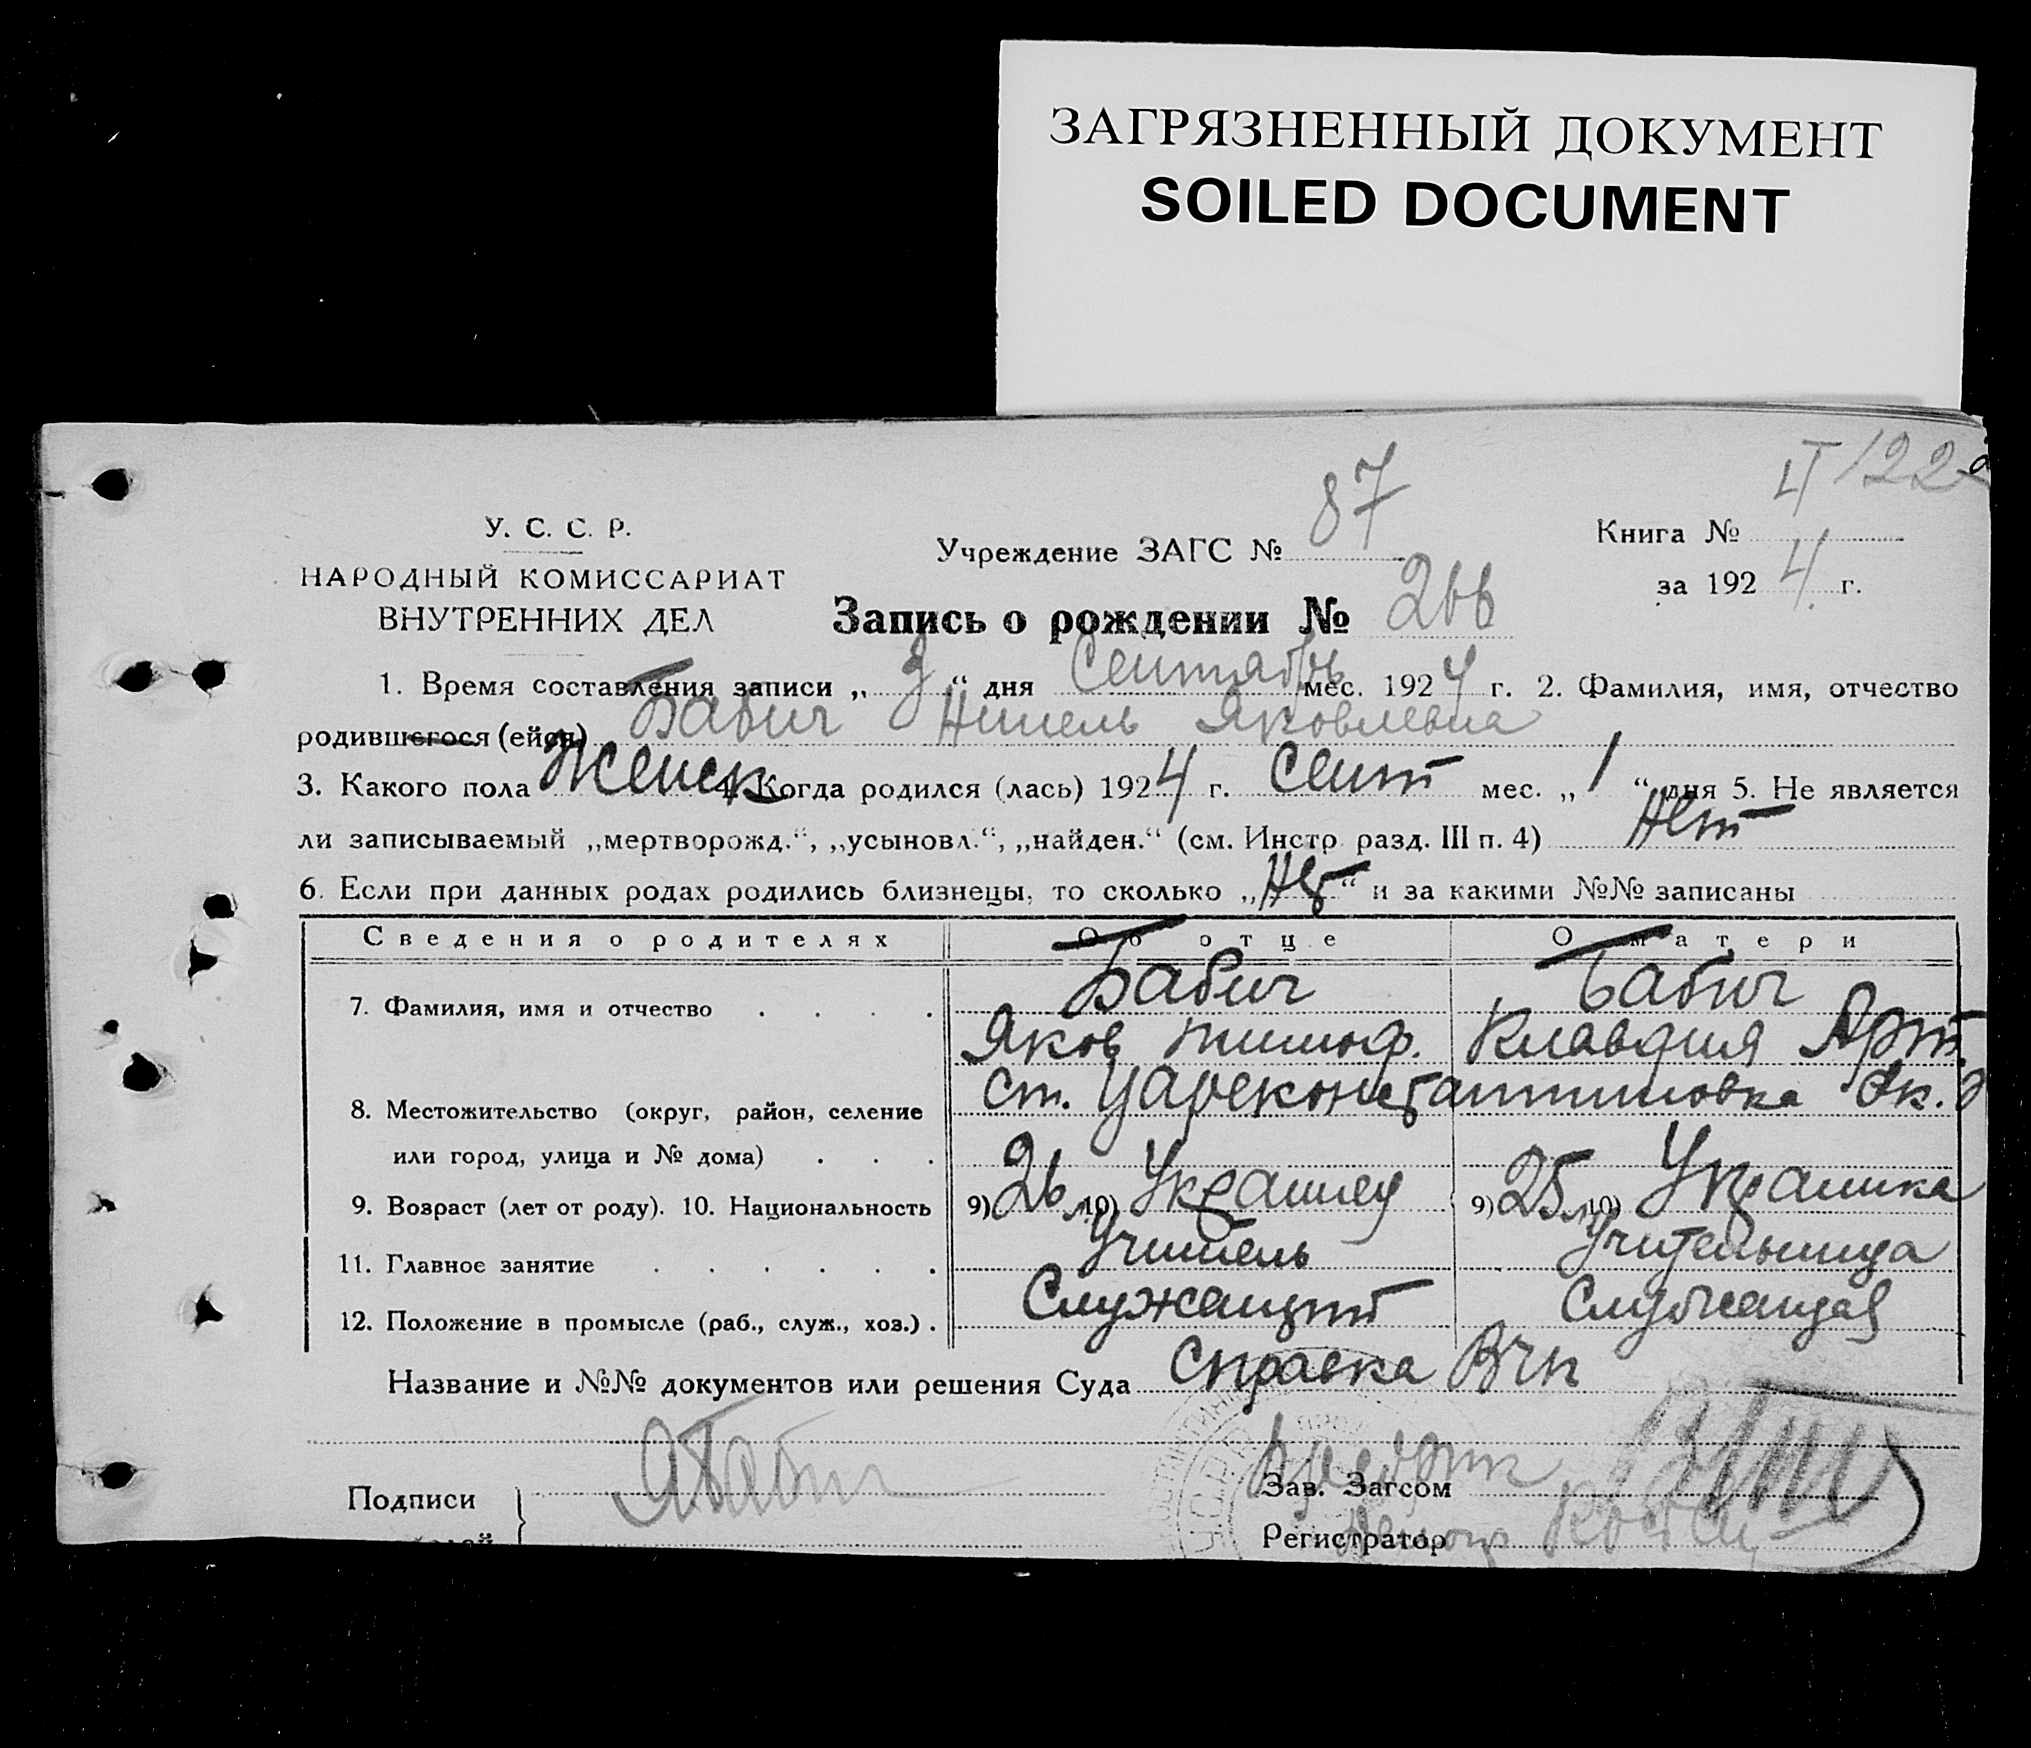 ЗАГРЯЗНЕННЫЙ ДОКУМЕНТ
SOILED DOCUMENT
II 122
У. С. С. Р.
НАРОДНЫЙ КОМИССАРИАТ
ВНУТРЕННИХ ДЕЛ
Учреждение ЗАГС № 87
Книга №
за 1924 г.
Запись о рождении № 266
1. Время составления записи „3“ дня Сентябрь мес. 1924 г. 2. Фамилия, имя, отчество
родившегося (ейся) Бабич Нинель Яковлевна
3. Какого пола Женск 4. Когда родился (лась) 1924 г. Сент мес. „1“ дня 5. Не является
ли записываемый „мертворожд.“, „усыновл.“, „найден.“ (см. Инстр. разд. III п. 4) Нет
6. Если при данных родах родились близнецы, то сколько „Нет“ и за какими №№ записаны
Сведения о родителях Об отце О матери
7. Фамилия, имя и отчество Бабич Бабич
Яков Тимоф. Клавдия Арт.
8. Местожительство (округ, район, селение ст. Цареконстантиновка Ек.
или город, улица и № дома)
9. Возраст (лет от роду). 10. Национальность 9) 26 л 10) Украинец 9) 25 л 10) Украинка
11. Главное занятие Учитель Учительница
12. Положение в промысле (раб., служ., хоз.) Служащий Служащая
Название и №№ документов или решения Суда Справка
Подписи ЯБабич
Зав. Загсом
Регистратор